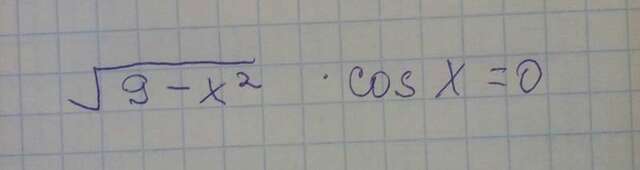 √(9 - x²) · cos x = 0